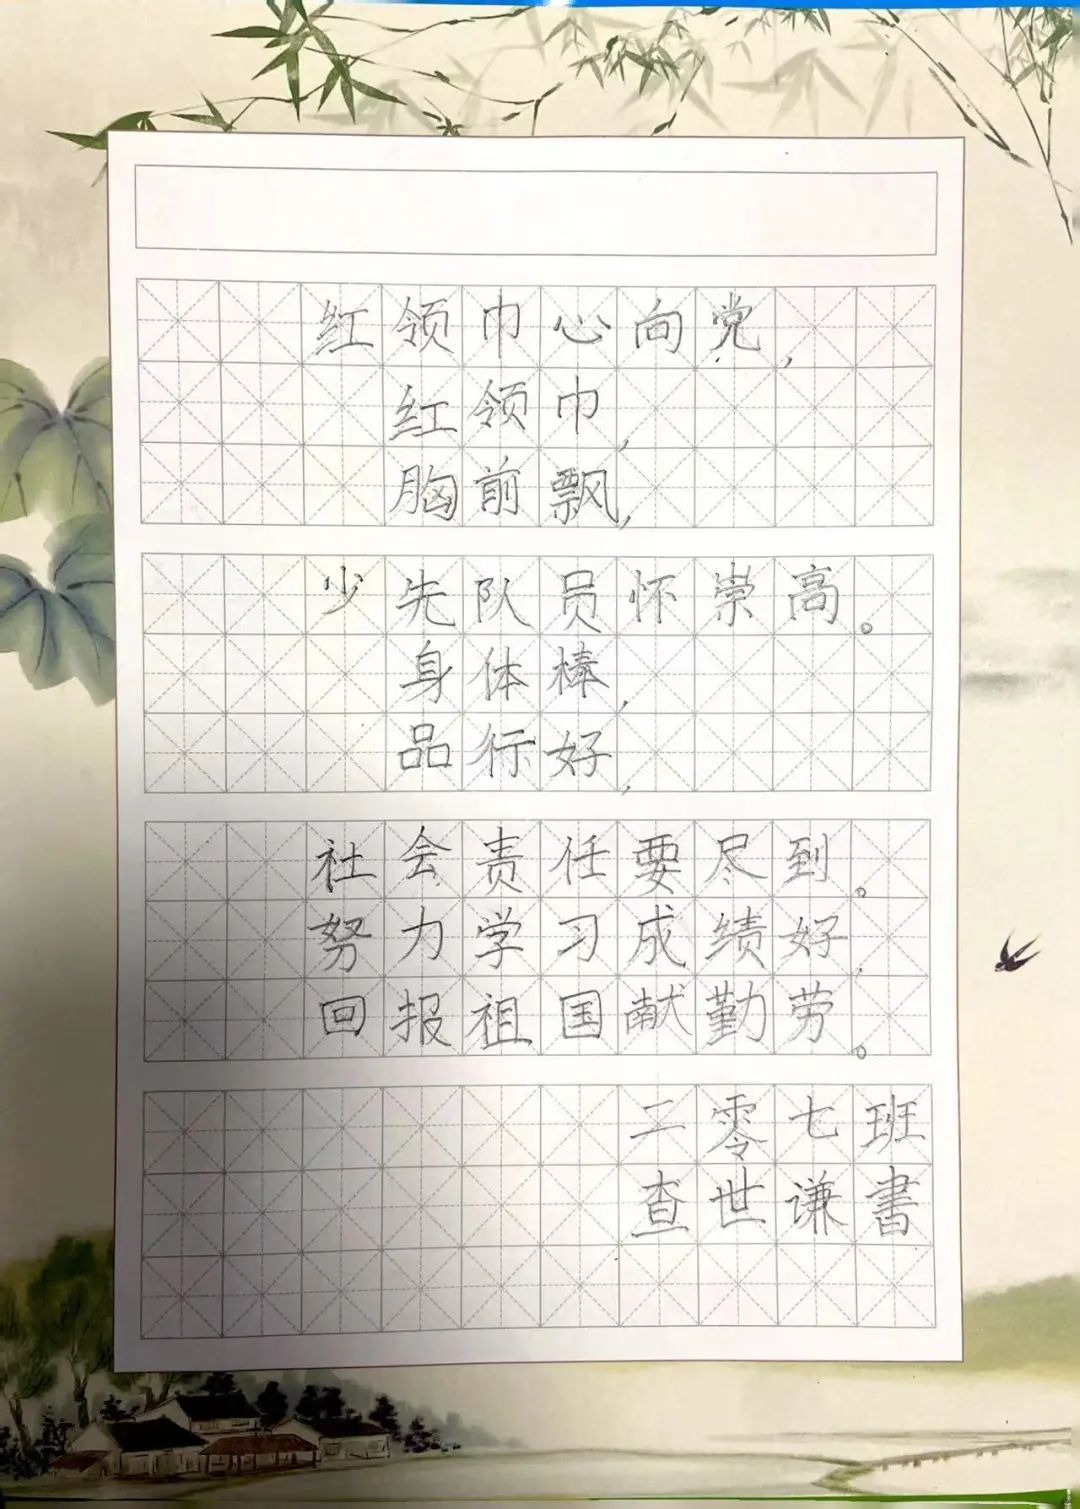 红领巾心向党，
红领巾，
胸前飘，
少先队员怀崇高。
身体棒，
品行好，
社会责任要尽到。
努力学习成绩好，
回报祖国献勤劳。
二零七班
查世谦書